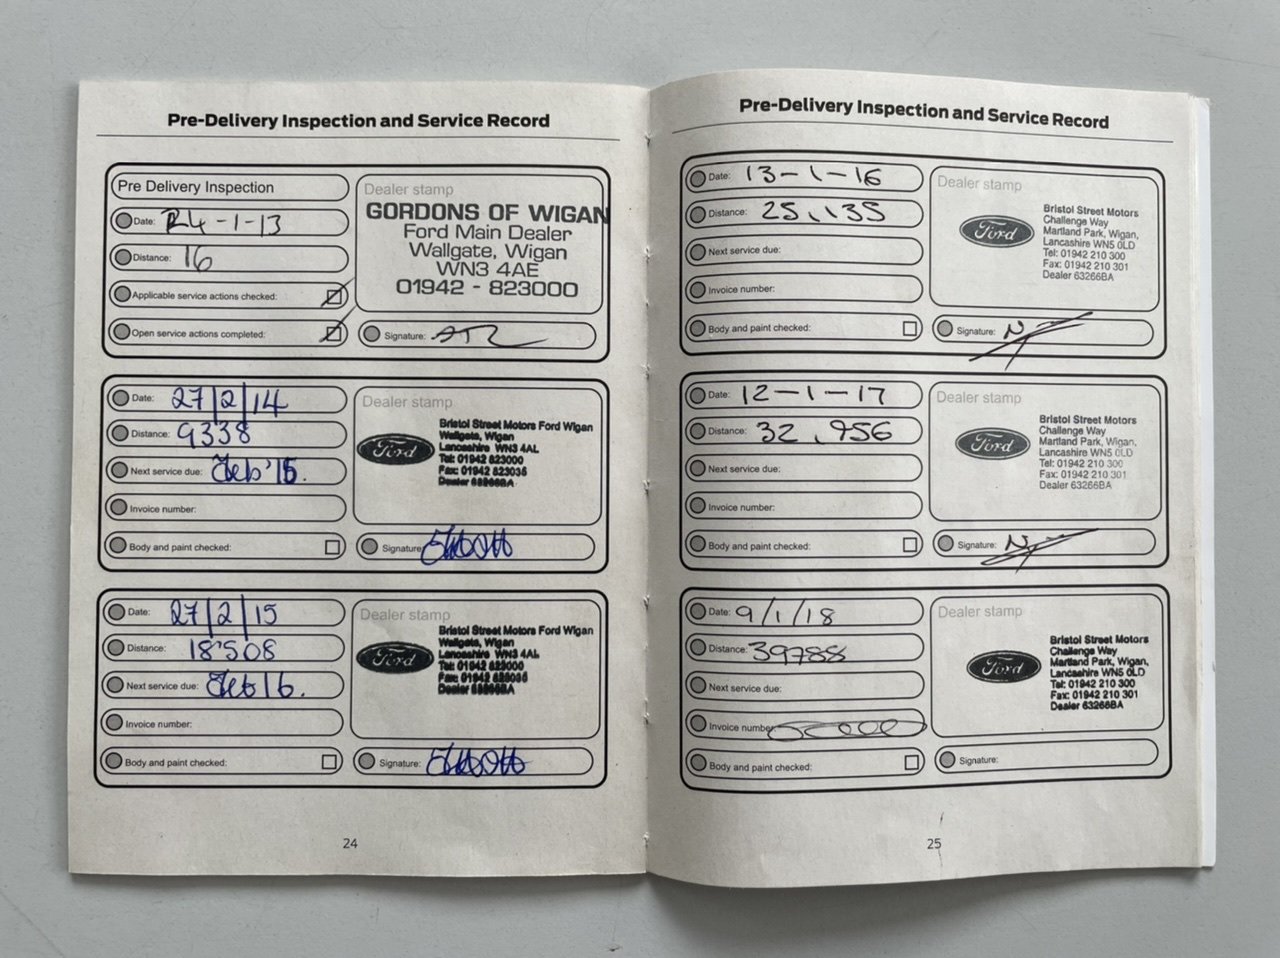 Pre-Delivery Inspection and Service Record
Pre Delivery Inspection
Date: 24-1-13
Distance: 16
Applicable service actions checked:
Open service actions completed:
Dealer stamp
GORDONS OF WIGAN
Ford Main Dealer
Wallgate, Wigan
WN3 4AE
01942 - 823000
Signature:
Date: 27/2/14
Distance: 9338
Next service due: Feb '15.
Invoice number:
Body and paint checked:
Dealer stamp
Ford
Bristol Street Motors Ford Wigan
Wallgate, Wigan
Lancashire WN3 4AL
Tel: 01942 823000
Fax: 01942 823036
Dealer 63266BA
Signature:
Date: 27/2/15
Distance: 18'508
Next service due: Feb 16.
Invoice number:
Body and paint checked:
Dealer stamp
Ford
Bristol Street Motors Ford Wigan
Wallgate, Wigan
Lancashire WN3 4AL
Tel: 01942 823000
Fax: 01942 823036
Dealer 63266BA
Signature:
24
Pre-Delivery Inspection and Service Record
Date: 13-1-16
Distance: 25,135
Next service due:
Invoice number:
Body and paint checked:
Dealer stamp
Ford
Bristol Street Motors
Challenge Way
Martland Park, Wigan,
Lancashire WN5 0LD
Tel: 01942 210 300
Fax: 01942 210 301
Dealer 63266BA
Signature:
Date: 12-1-17
Distance: 32,956
Next service due:
Invoice number:
Body and paint checked:
Dealer stamp
Ford
Bristol Street Motors
Challenge Way
Martland Park, Wigan,
Lancashire WN5 0LD
Tel: 01942 210 300
Fax: 01942 210 301
Dealer 63266BA
Signature:
Date: 9/1/18
Distance: 39788
Next service due:
Invoice number:
Body and paint checked:
Dealer stamp
Ford
Bristol Street Motors
Challenge Way
Martland Park, Wigan,
Lancashire WN5 0LD
Tel: 01942 210 300
Fax: 01942 210 301
Dealer 63266BA
Signature:
25